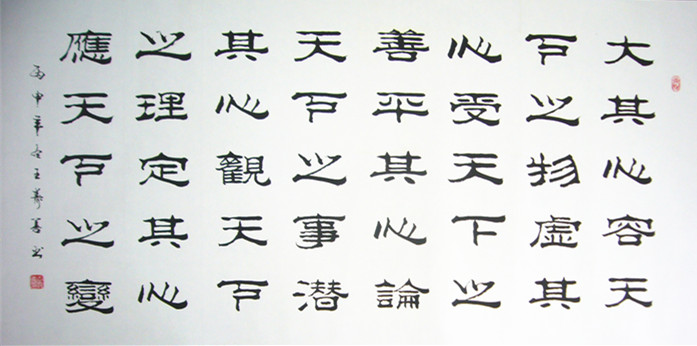 大其心容天
下之物虛其
心受天下之
善平其心論
天下之事潜
其心觀天下
之理定其心
應天下之變
丙申年冬王善书